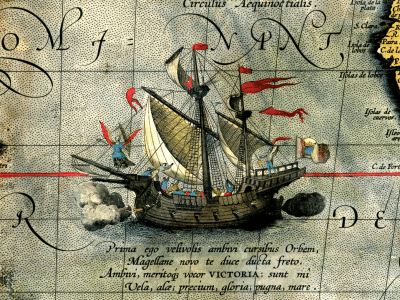 Circulus Aequinoctialis.
OMI- NPNT,
Isolas de lobos
Isolas de
C. de
R DE
Prima ego velivolis ambivi cursibus Orbem,
Magellane novo te duce ducta freto.
Ambivi, meritoq; vocor VICTORIA: sunt mi
Vela, alæ; precium, gloria; pugna, mare.